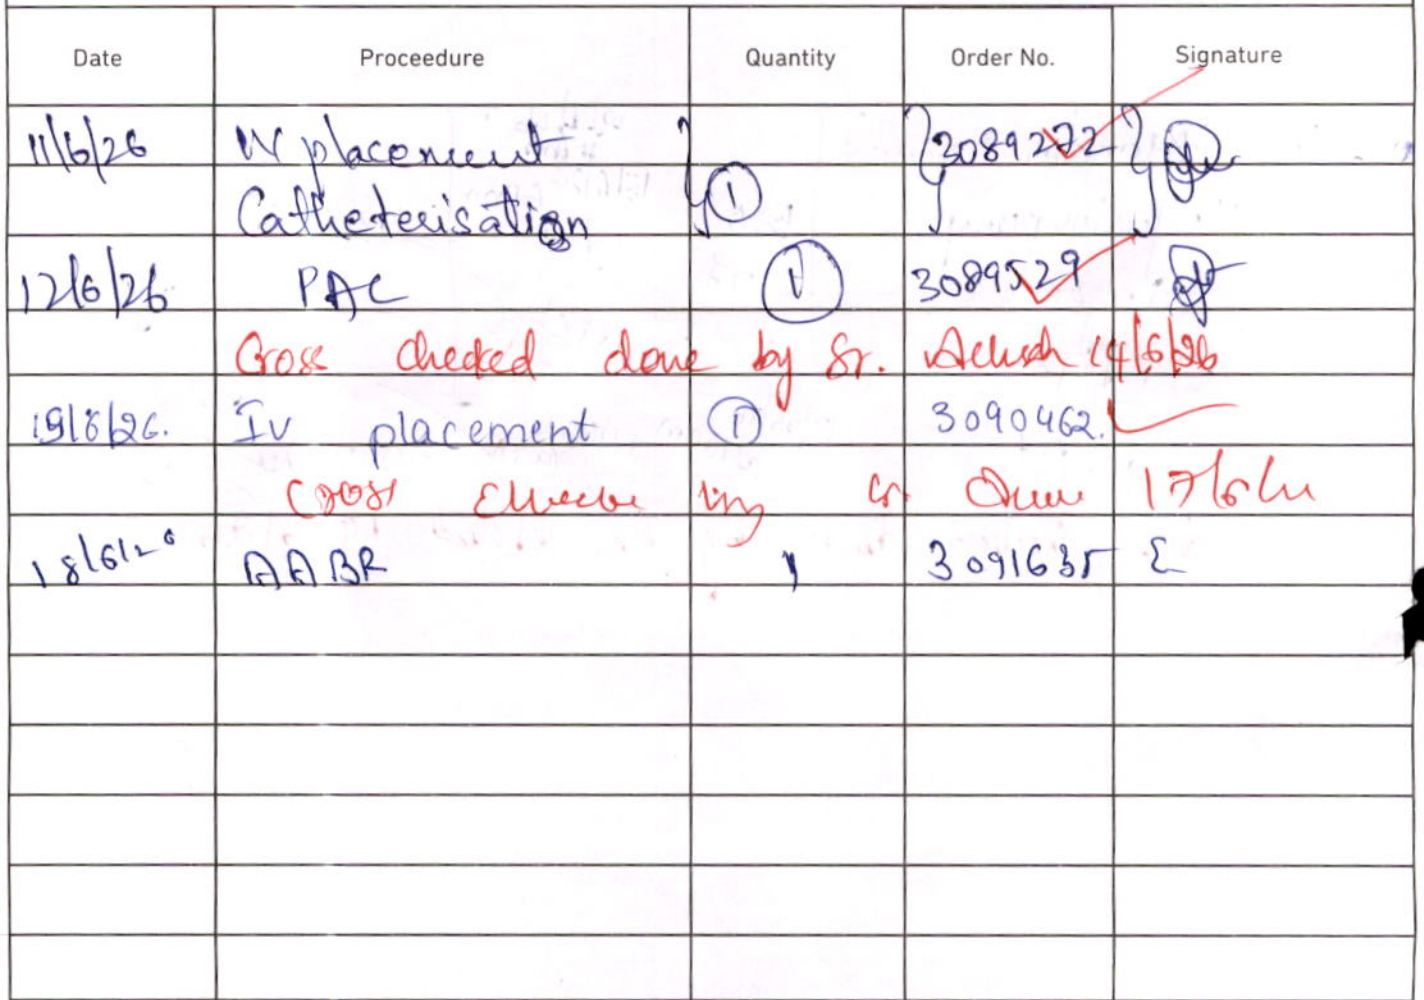 Date Proceedure Quantity Order No. Signature
11/6/26 IV placement 3089272
Catheterisation 1
12/6/26 PAC 1 3089529
Cross checked done by Sr. 14/6/26
15/6/26. IV placement 1 3090462.
Cross
18/6/26 AABR 1 3091635